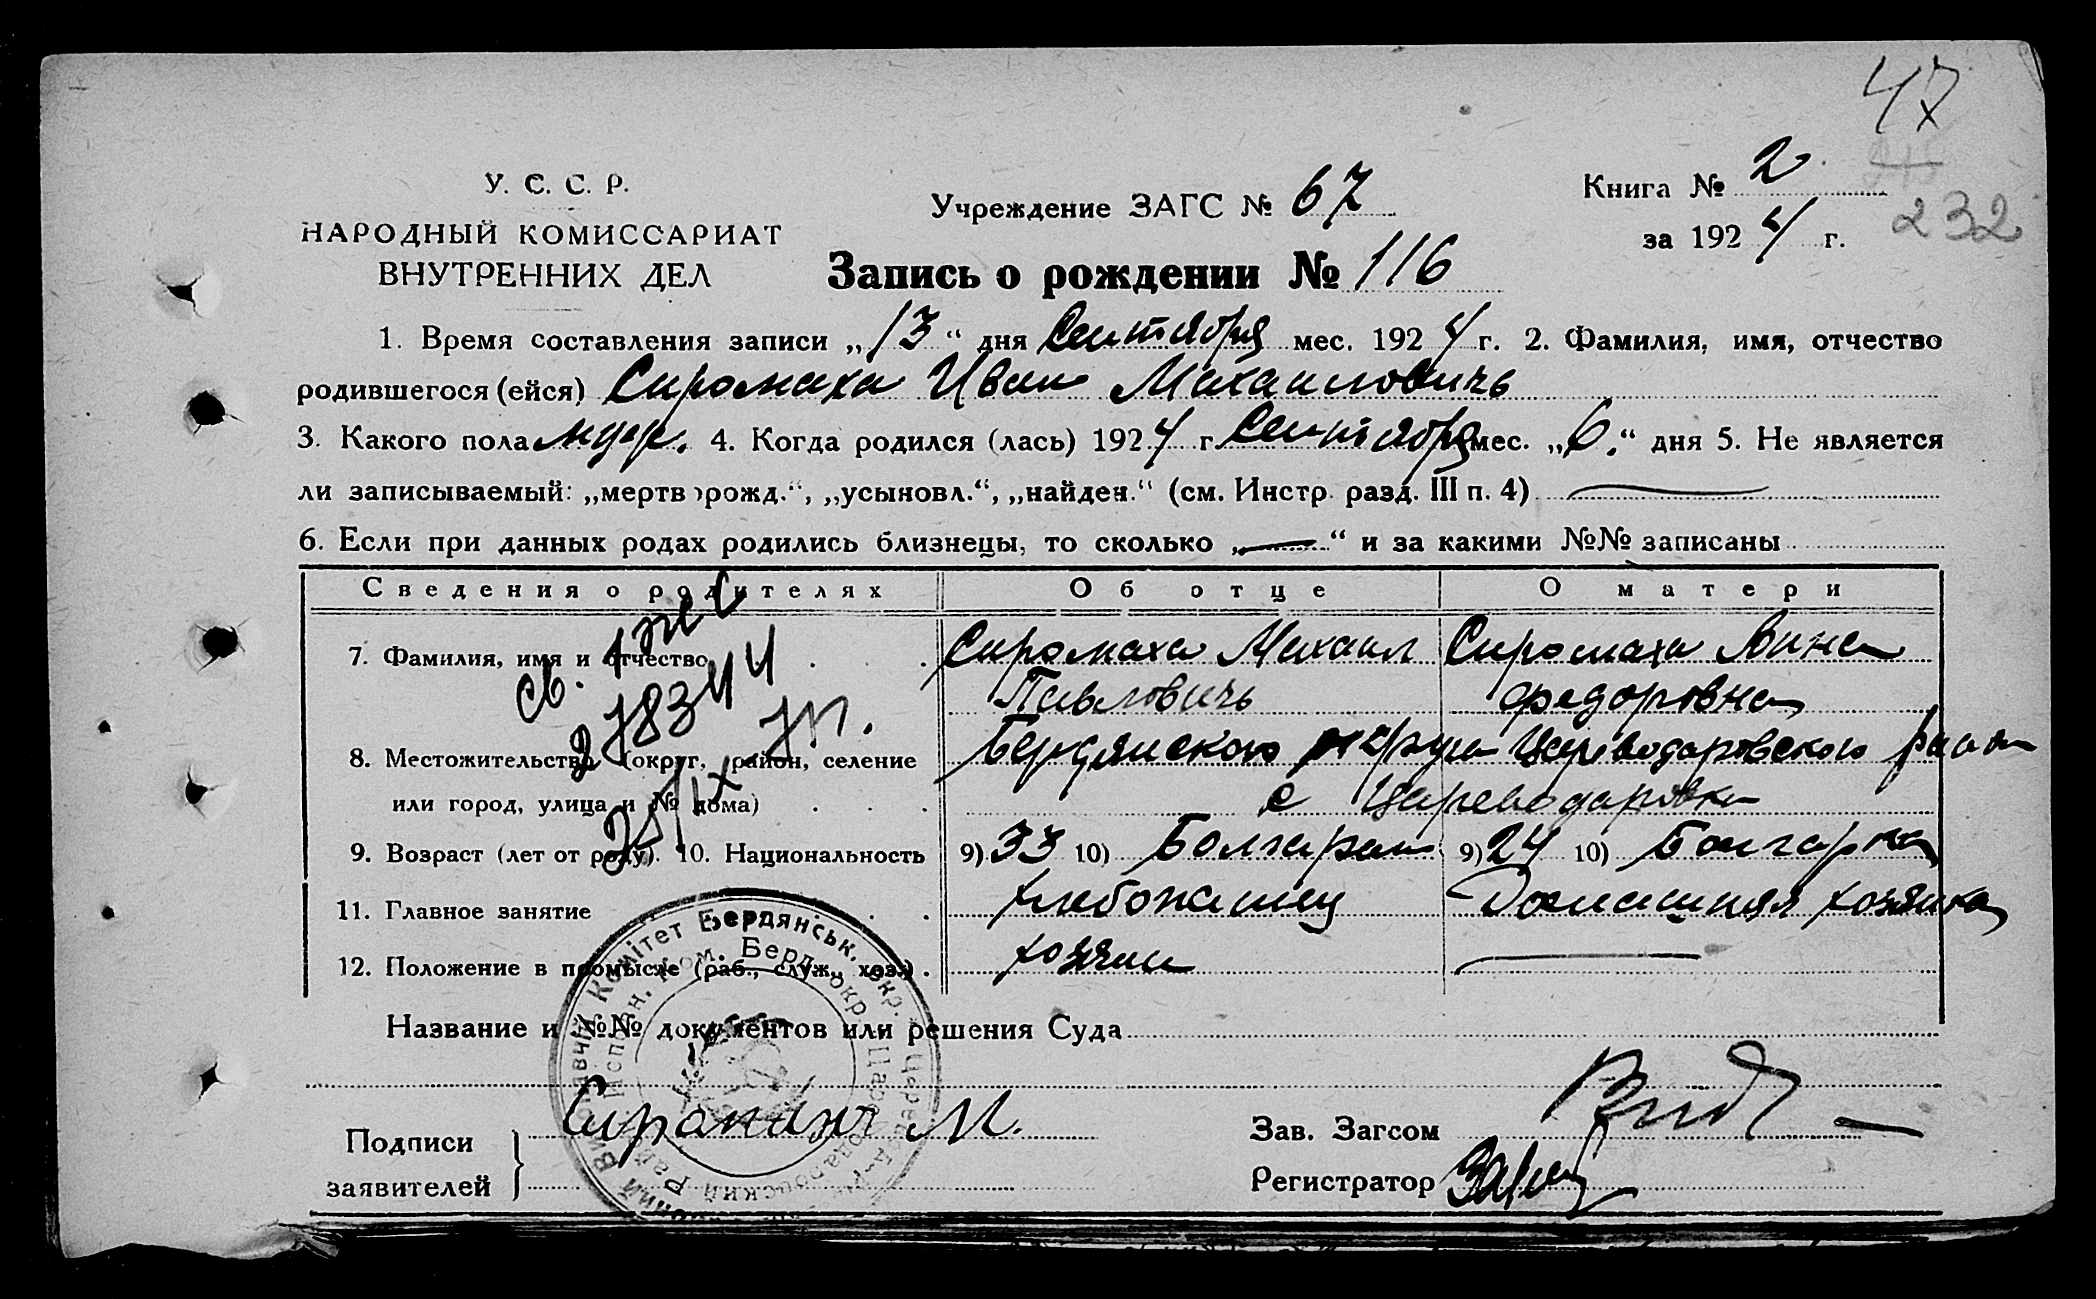 47
У. С. С. Р.
НАРОДНЫЙ КОМИССАРИАТ
ВНУТРЕННИХ ДЕЛ
Учреждение ЗАГС № 67
Книга № 2
за 1924 г.
232
Запись о рождении № 116
1. Время составления записи „13“ дня Сентября мес. 1924 г. 2. Фамилия, имя, отчество
родившегося (ейся) Сиромаха Иван Михаиловичъ
3. Какого пола муж. 4. Когда родился (лась) 1924 г. Сентября мес. „6.“ дня 5. Не является
ли записываемый: „мертворожд.“, „усыновл.“, „найден.“ (см. Инстр. разд. III п. 4)
6. Если при данных родах родились близнецы, то сколько „—“ и за какими №№ записаны
Сведения о родителях Об отце О матери
7. Фамилия, имя и отчество Сиромаха Михаил Сиромаха Анна
Павловичъ федоровна
8. Местожительство (округ, район, селение Бердянского округа Цареводаровского района
или город, улица и № дома) с Цареводаровка
9. Возраст (лет от роду). 10. Национальность 9) 33 10) Болгарин 9) 24 10) Болгарка
11. Главное занятие хлебопашец Домашняя хозяйка
12. Положение в промысле (раб., служ., хоз.) хозяин —
св.
278344
Название и №№ документов или решения Суда
Комітет Бердянськ. окр.
Ком. Берд. окр.
Подписи
заявителей
М.
Зав. Загсом
Регистратор